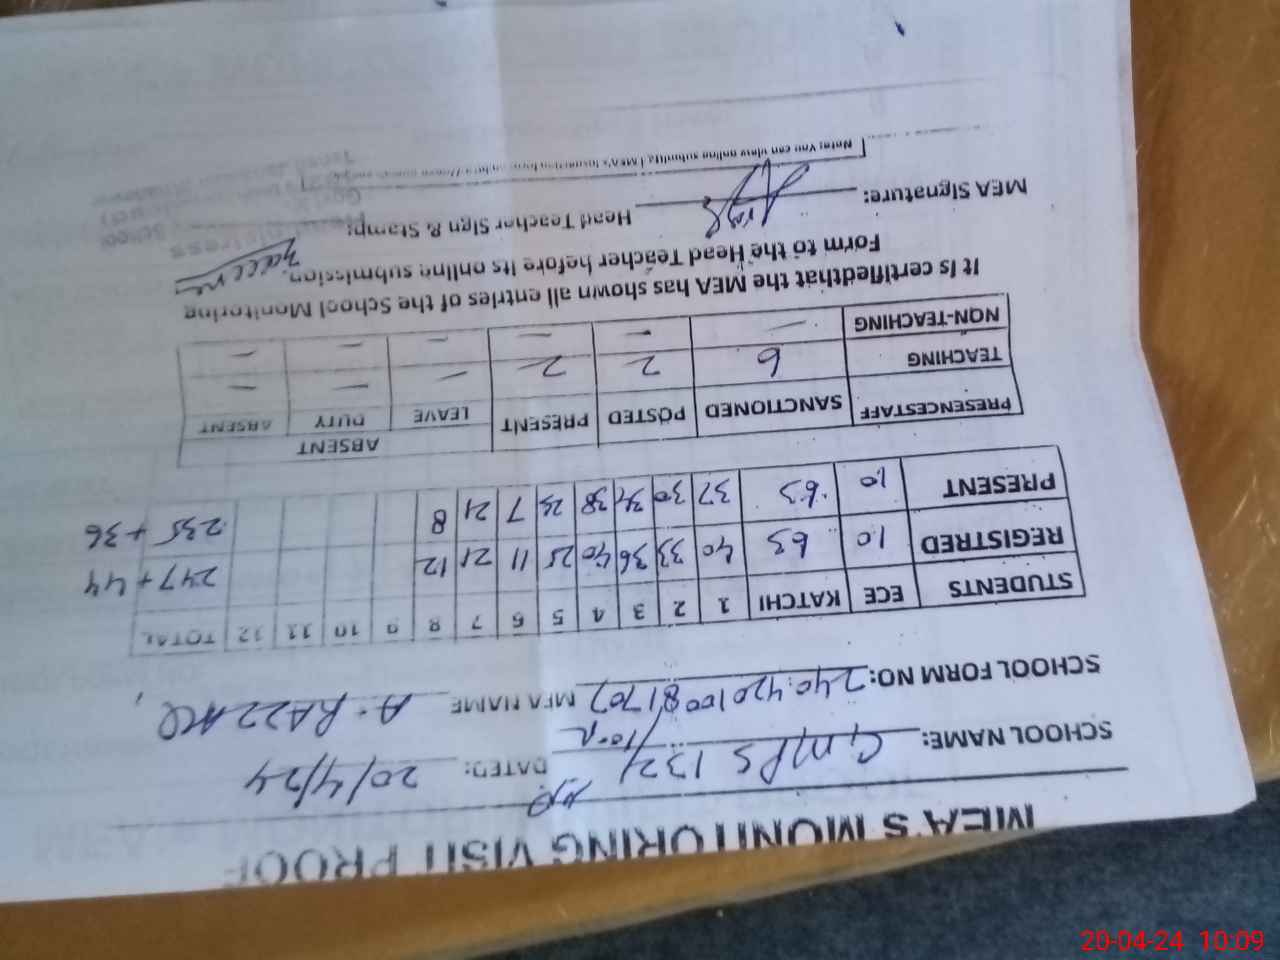 MEA'S MONITORING VISIT PROOF
SCHOOL NAME: GMPS 132/ DATED: 20/4/24
SCHOOL FORM NO: MEA NAME A. RAZZAQ
STUDENTS ECE KATCHI 1 2 3 4 5 6 7 8 9 10 11 12 TOTAL
REGISTRED 10 63 40 33 36 40 25 11 21 12 247 + 44
PRESENT 10 63 37 30 34 38 23 7 21 8 235 + 36
PRESENCESTAFF SANCTIONED POSTED PRESENT ABSENT
LEAVE DUTY ABSENT
TEACHING 6 2 2 — — —
NON-TEACHING — — — — — —
It is certifiedthat the MEA has shown all entries of the School Monitoring
Form to the Head Teacher before its online submission.
MEA Signature: Head Teacher Sign & Stamp:
Note: You can view online submitted MEA's
20-04-24 10:09